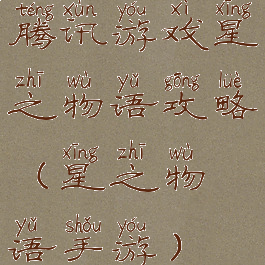 téng xùn yóu xì xīng
腾讯游戏星
zhī wù yǔ gōng lüè
之物语攻略
xīng zhī wù
(星之物
yǔ shǒu yóu
语手游)